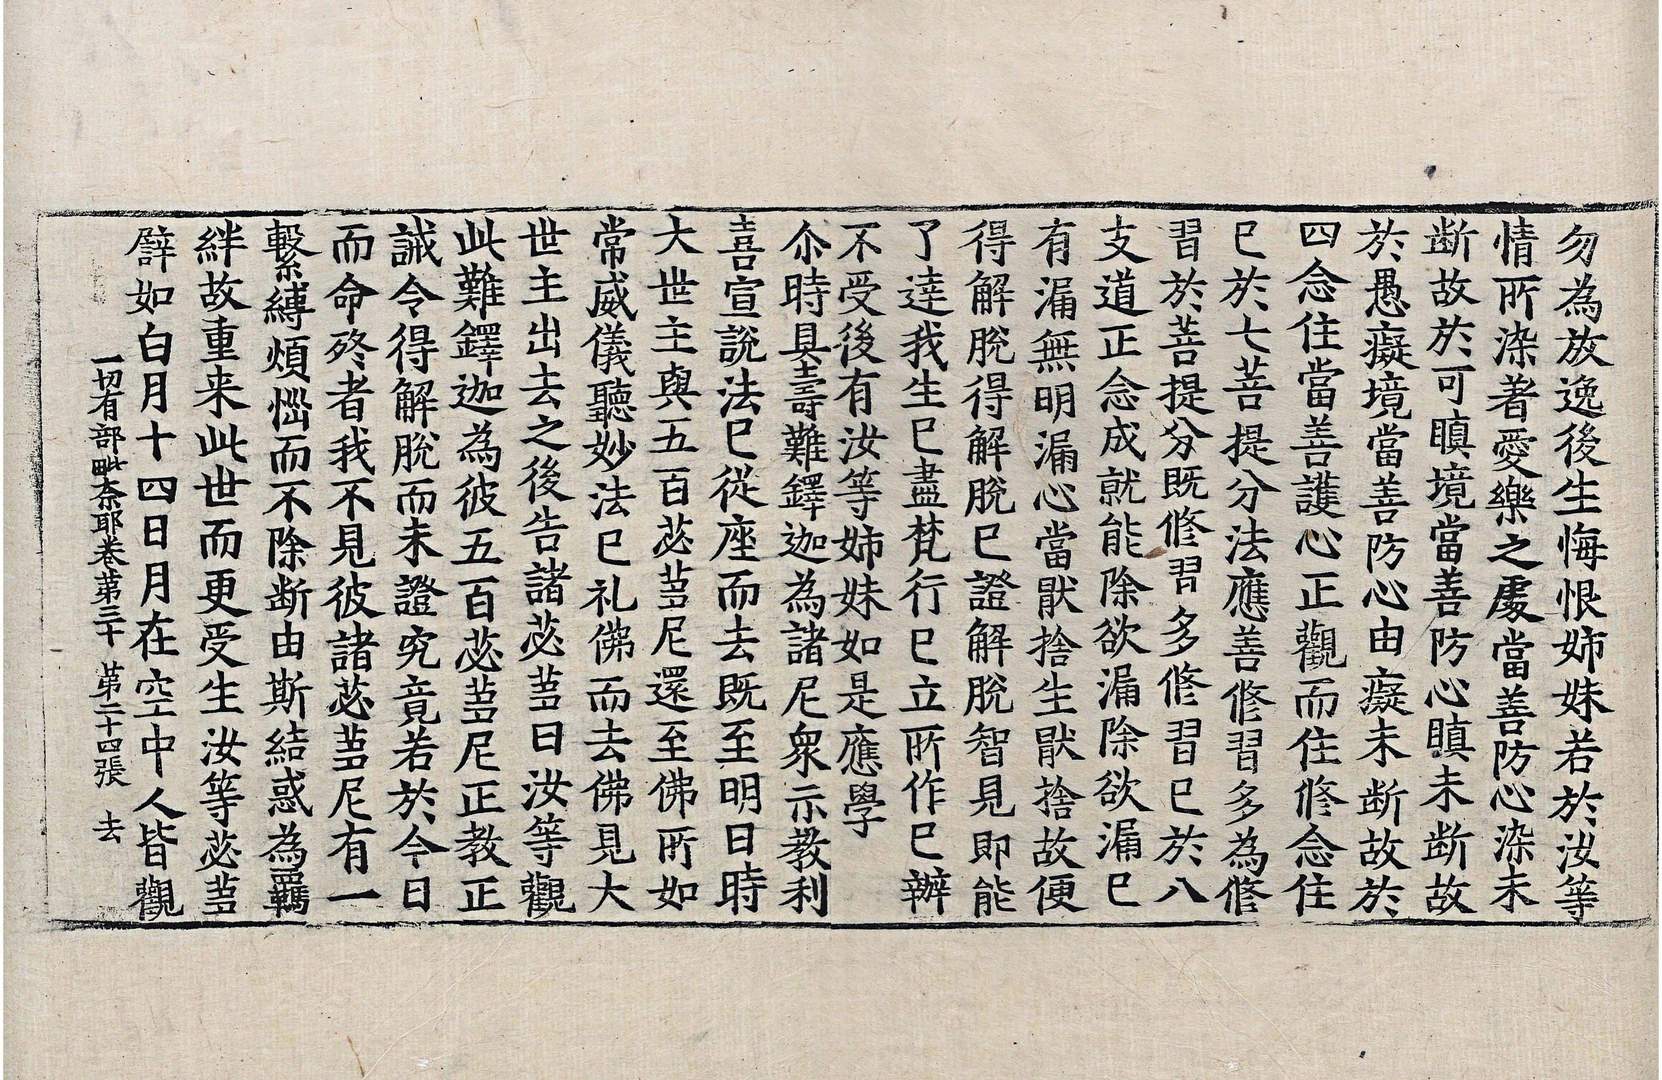 勿為放逸後生悔恨姉妹若於汝等
情所染著愛樂之處當善防心染未
断故於可瞋境當善防心瞋未断故
於愚癡境當善防心由癡未断故於
四念住當善護心正觀而住修念住
已於七菩提分法應善修習多為修
習於菩提分既修習多修習已於八
支道正念成就能除欲漏除欲漏已
有漏無明漏心當猒捨生猒捨故便
得解脫得解脫已證解脫智見即能
了達我生已盡梵行已立所作已辦
不受後有汝等姉妹如是應學
尒時具壽難鐸迦為諸尼衆示教利
喜宣說法已從座而去既至明日時
大世主與五百苾蒭尼還至佛所如
常威儀聽妙法已礼佛而去佛見大
世主出去之後告諸苾蒭曰汝等觀
此難鐸迦為彼五百苾蒭尼正教正
誡令得解脫而未證究竟若於今日
而命終者我不見彼諸苾蒭尼有一
繫縛煩惱而不除断由斯結惑為羈
絆故重来此世而更受生汝等苾蒭
譬如白月十四日月在空中人皆觀
一切有部毗奈耶卷第三十 第二十四張 去